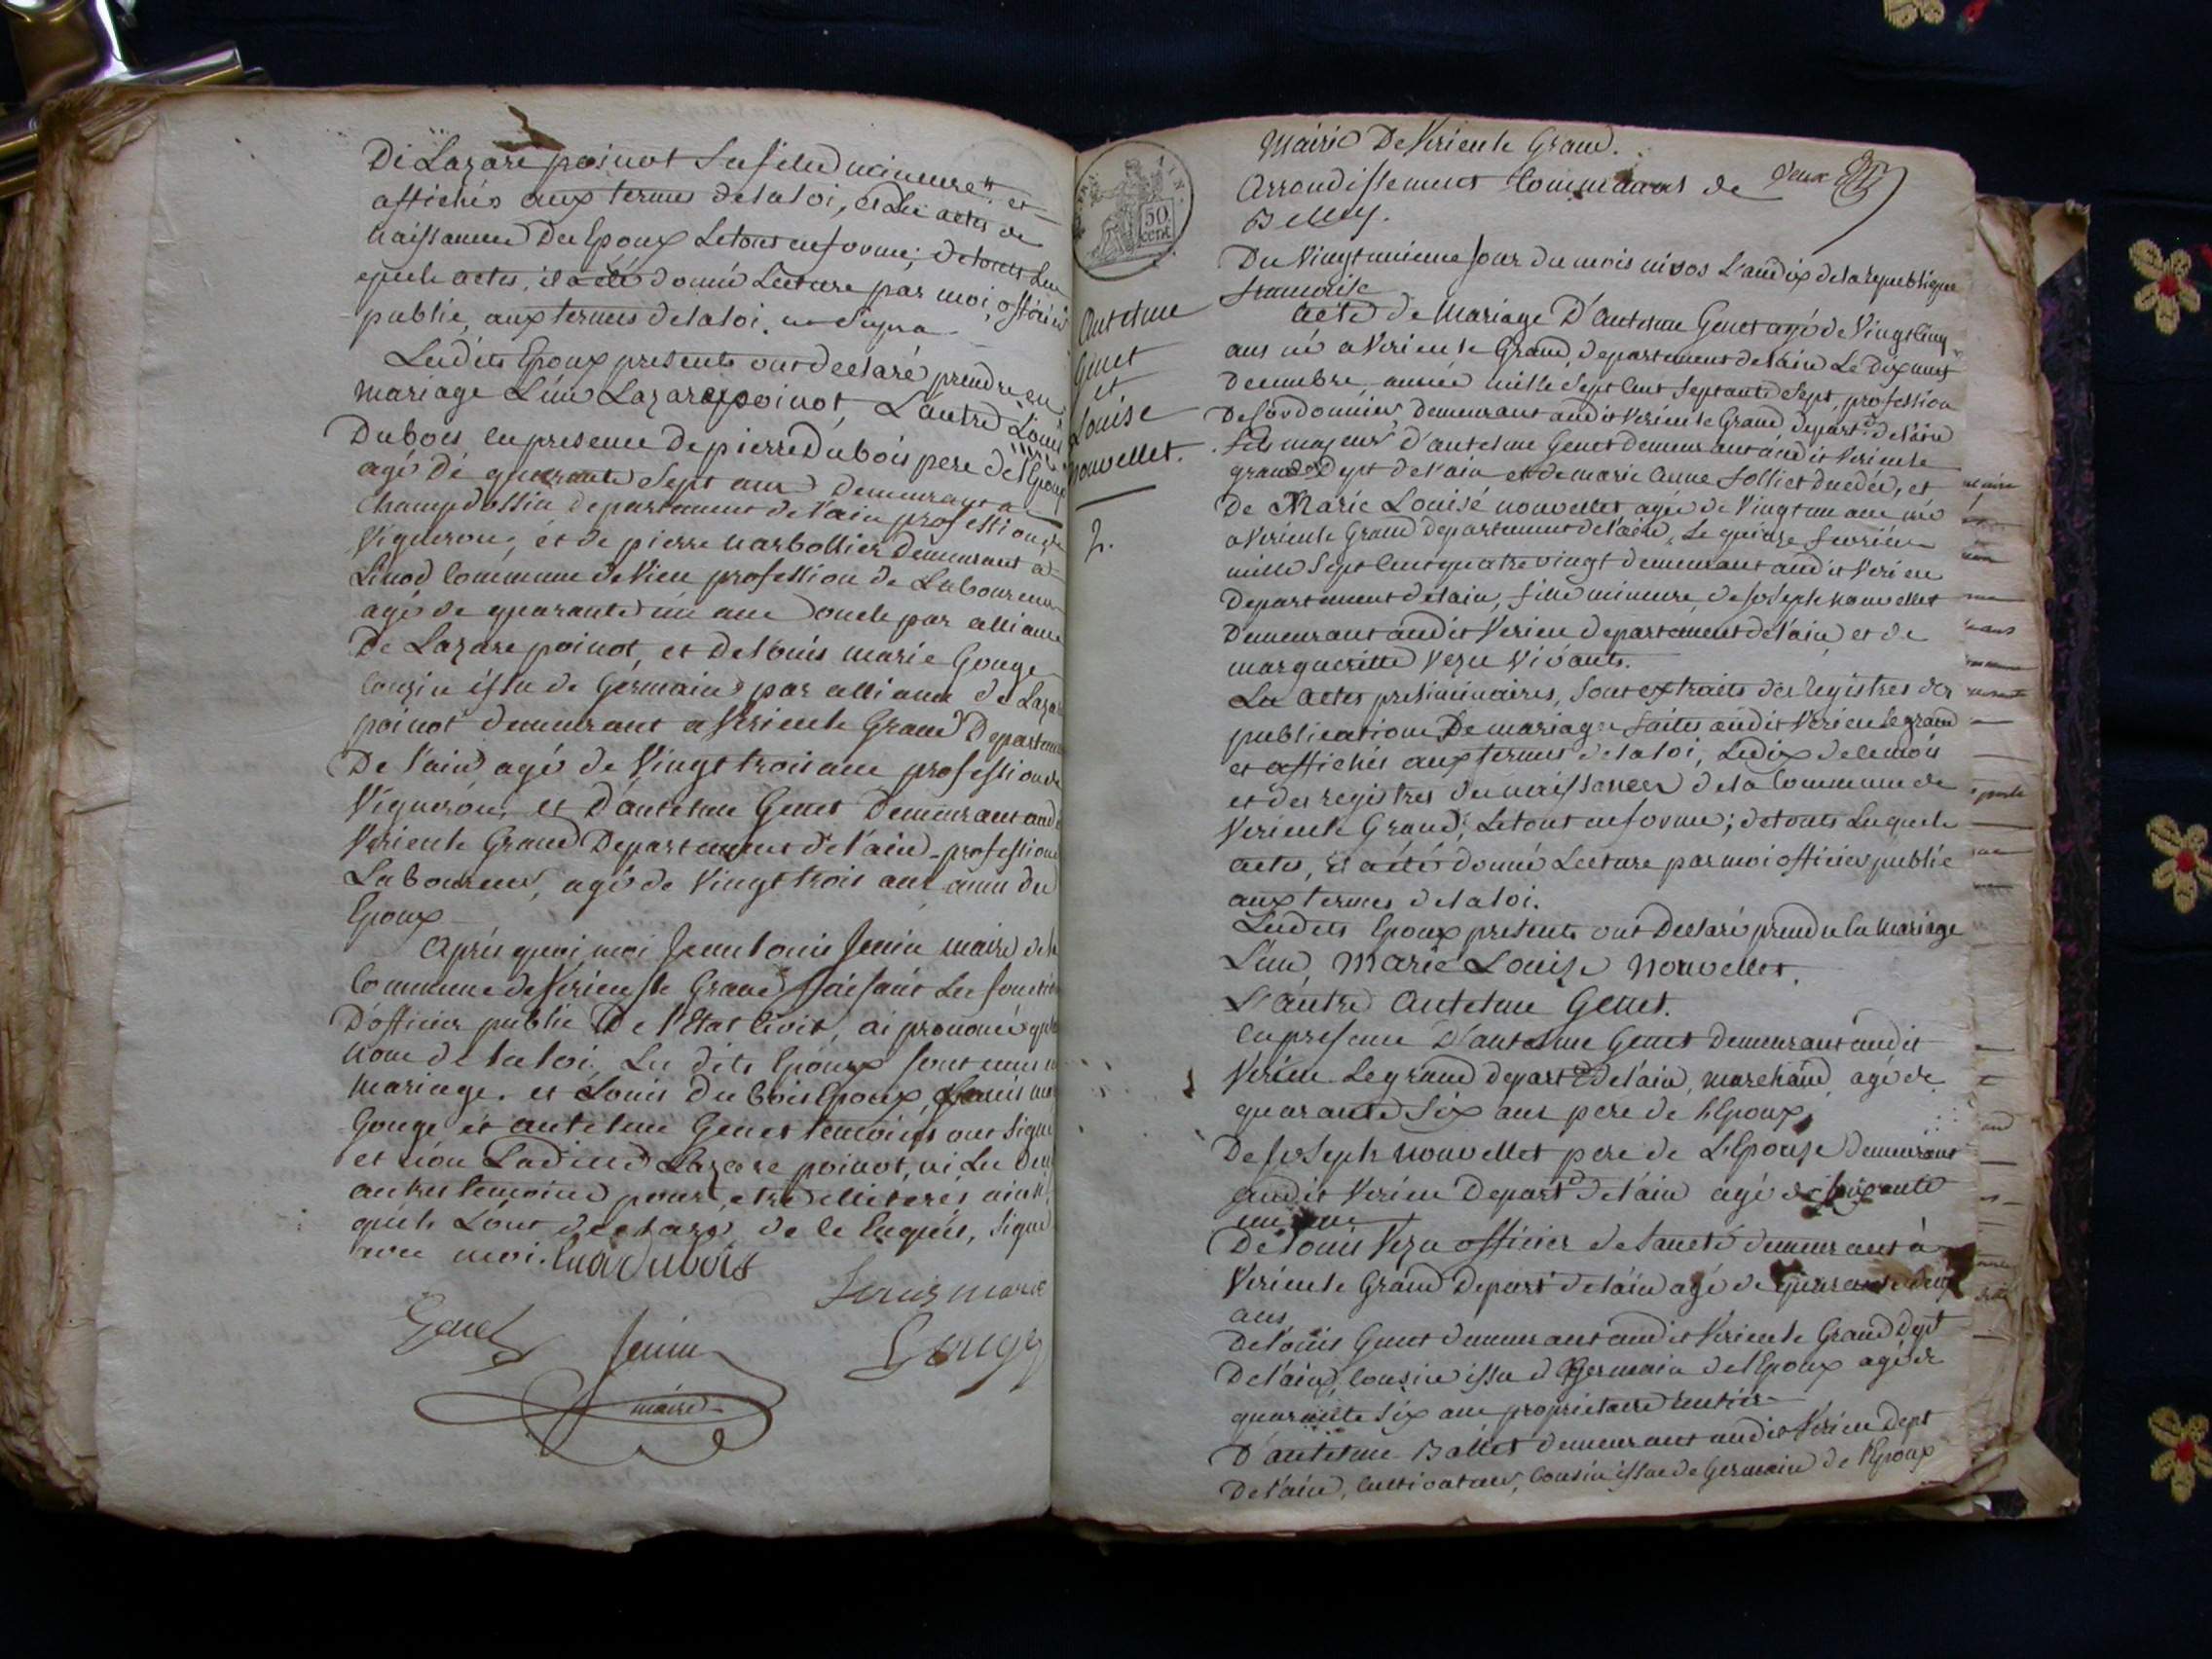 De Lazare poinot sa fille mineure et
affichés aux termes de la loi, et des actes de
Naissance Des Epoux Le tout en forme; de touts Les
quels actes, il a eté donné Lecture par moi, officier
public, aux termes de la loi. ut Supra
Lesdits Epoux presents ont declaré prendre en
mariage L'un Lazare poinot, L'autre Louis
Dubois en presence De pierre Dubois pere de l'Epoux
agé de quarante Sept ans demeurant a
Champdossin Departement de l'ain profession de
Vigneron, et de pierre demeurant a
Linod Commune de Vieu profession de Laboureur
agé de quarante un ans oncle par alliance
De Lazare poinot, et de Louis marie Gouge
Cousin issu de Germain par alliance de Lazare
poinot demeurant a Virieu le Grand Departement
De l'ain agé de Vingt trois ans profession de
Vigneron, et D'antelme Genet Demeurant audit
Virieu le Grand Departement de l'ain profession
Laboureur, agé de Vingt trois ans amis des
Epoux
Après quoi, moi Jean Louis Jenin maire de la
Commune de Virieu le Grand faisant Les fonctions
D'officier public De l'Etat Civil, ai prononcé qu'au
Nom de la loi, Les dits Epoux sont unis en
Mariage. et Louis Du bois Epoux, Louis marie
Gouge et antelme Genet temoins ont signé
et non Ladite Lazare poinot, ni Les deux
autres temoins pour etre illiterés ainsi
qu'ils L'ont declaré de le enquis, signé
avec moi. Dubois
Louis marie
Genet Jenin Gouge
maire
Mairie De Virieu le Grand.
Arrondissement Communal de deux
Belley.
50 cent
Antelme
Genet
et
Louise
Nouvellet.
2.
Du Vingt unieme Jour du mois nivos L'an dix de la republique
francaise
Acte de Mariage D'Antelme Genet agé de Vingt Cinq
ans né a Virieu le Grand, departement de l'ain Le Dix neuf
Decembre, année mille Sept Cent Septante Sept, profession
De Cordonnier demeurant audit Virieu le Grand Depart. de l'ain
fils majeur D'antelme Genet demeurant audit Virieu le
grand Dept de l'ain et de marie Anne Jolliet decedée, et
De Marie Louise nouvellet agée de Vingt un ans née
a Virieu le Grand Departement de l'ain, Le quinze fevrier
mille Sept Cent quatre vingt demeurant audit Virieu
Departement de l'ain, fille mineure de Joseph Nouvellet
Demeurant audit Virieu departement de l'ain et de
margueritte Vezu Vivants.
Les Actes preliminaires, sont extraits des registres des
publications De mariage faites audit Virieu le grand
et affichés aux termes de la loi, Le dix de le mois
et des registres de naissances de la Commune de
Virieu le Grand, Le tout en forme; de touts Lesquels
actes, il a eté donné Lecture par moi officier public
aux termes de la loi.
Lesdits Epoux presents ont Declaré prendre en Mariage
L'un Marie Louise Nouvellet.
L'autre Antelme Genet.
en presence D'antelme Genet Demeurant audit
Virieu Le grand depart de l'ain, marchand agé de
quarante Six ans pere de l'Epoux,
De Joseph Nouvellet pere de L'Epouse Demeurant
audit Virieu Depart de l'ain agé de soixante
un ans
De Louis Vezu officier de Santé demeurant à
Virieu le Grand Depart de l'ain agé de quarante deux
ans
De Louis Genet demeurant audit Virieu le Grand Dept
De l'ain, Cousin issu de Germain de l'Epoux agé de
quarante Six ans proprietaire rentier
D'antelme Ballet demeurant audit Virieu Dept
De l'ain, Cultivateur, Cousin issu de Germain de l'Epoux